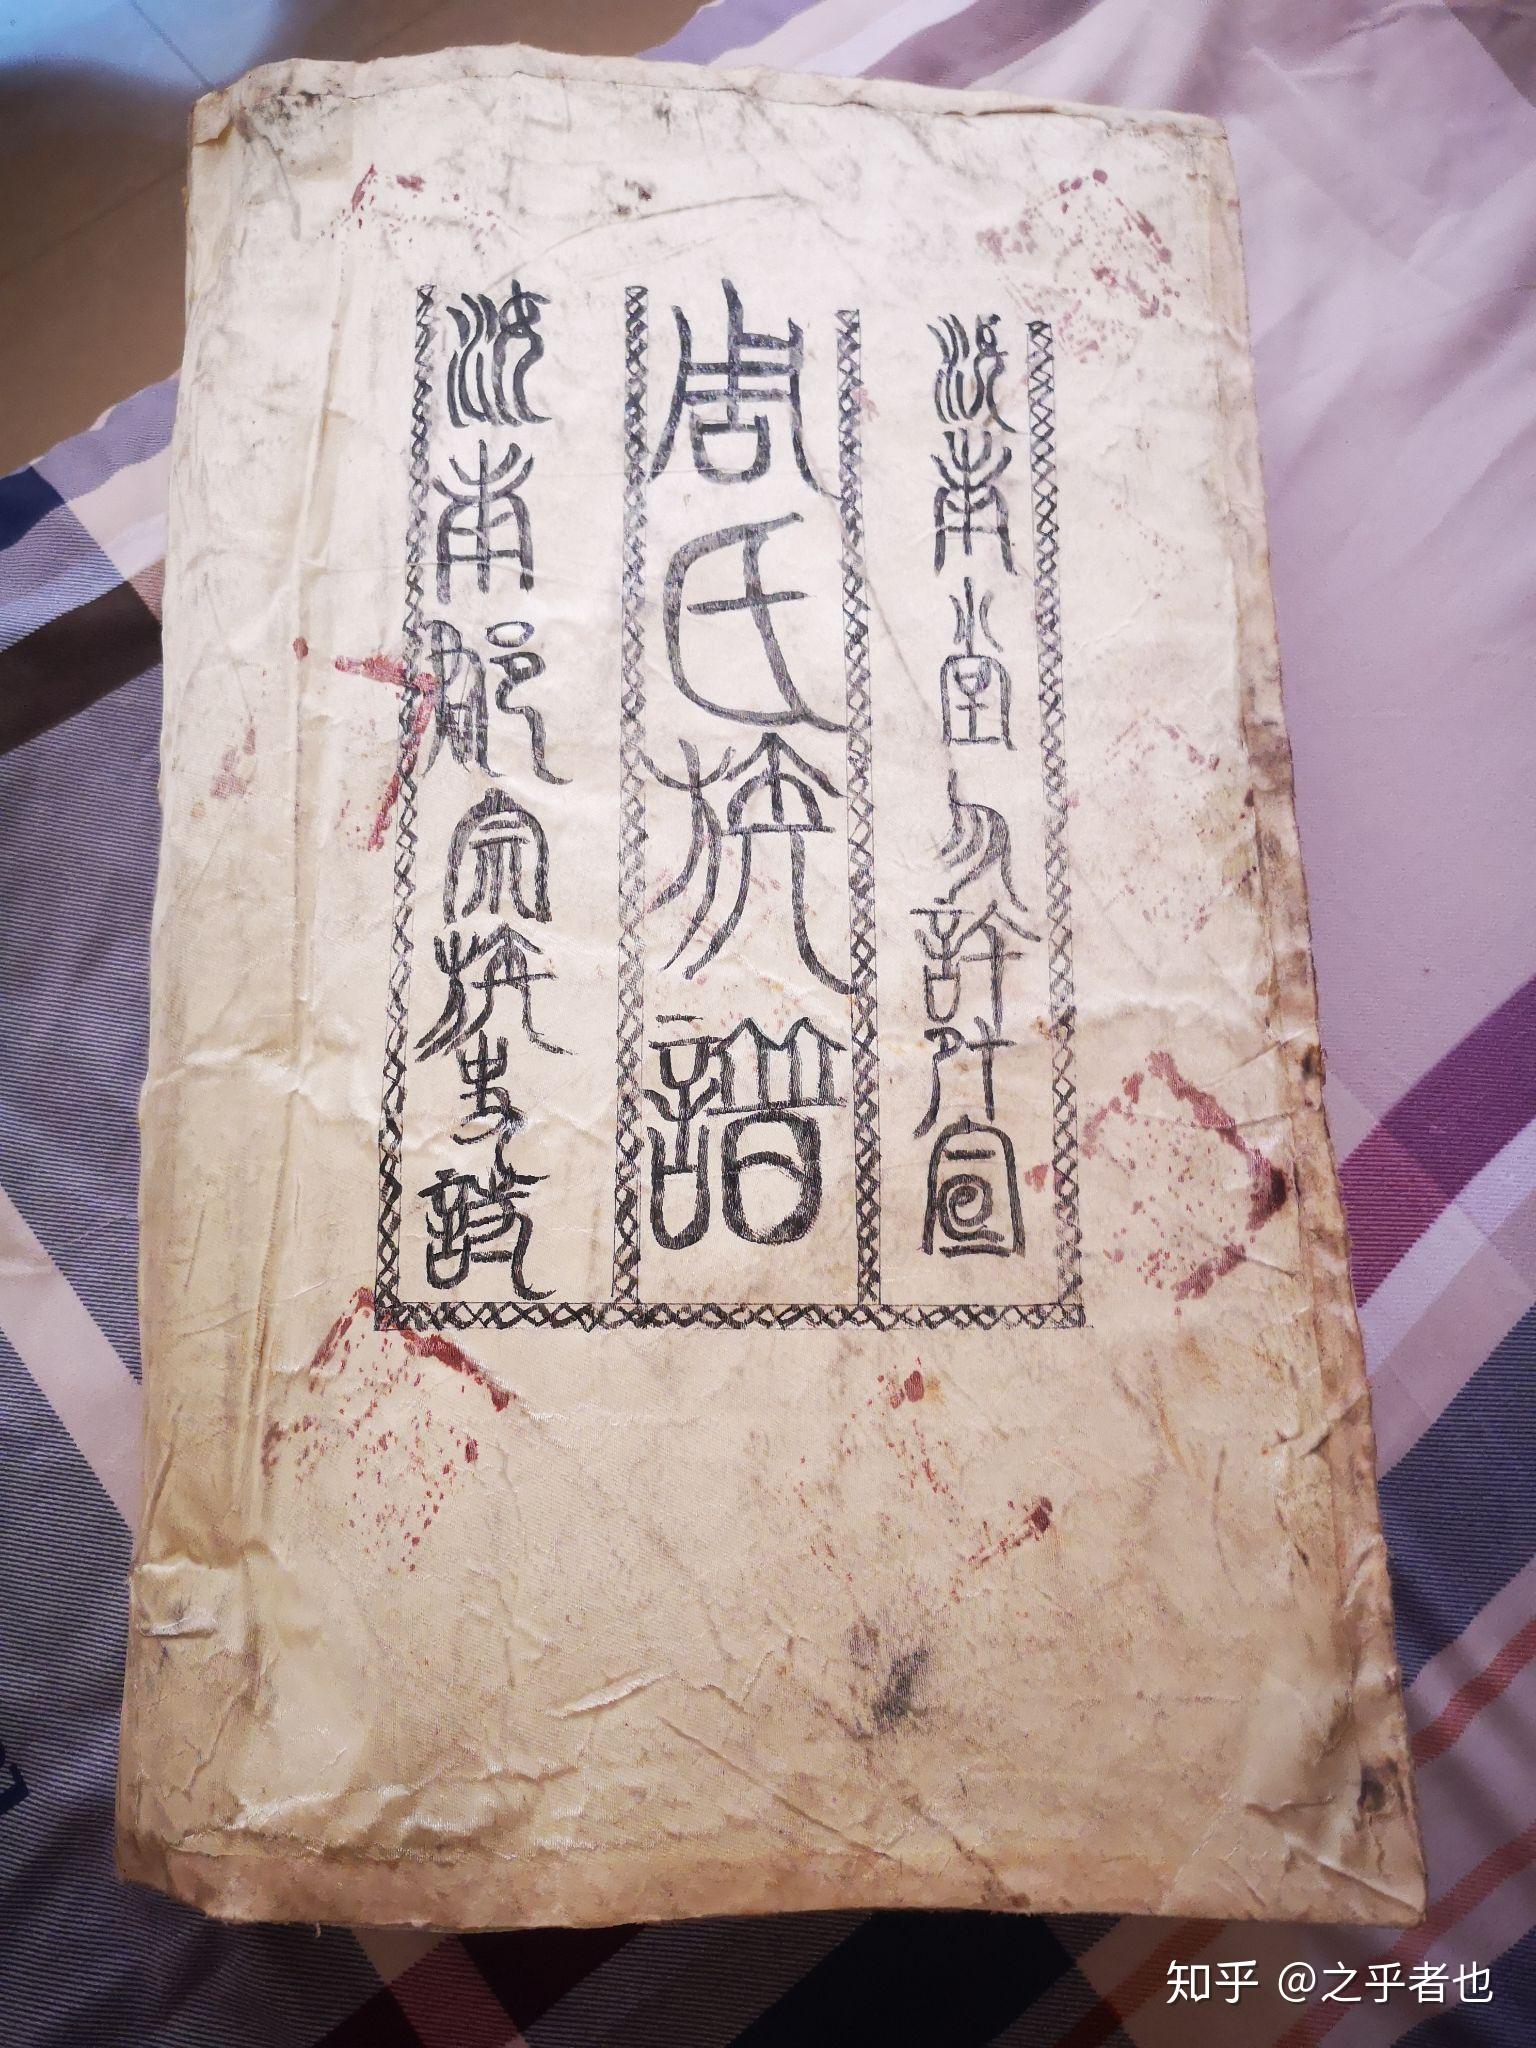 汝南堂勿許外宣
周氏族譜
汝南郡宗族史記
知乎 @之乎者也